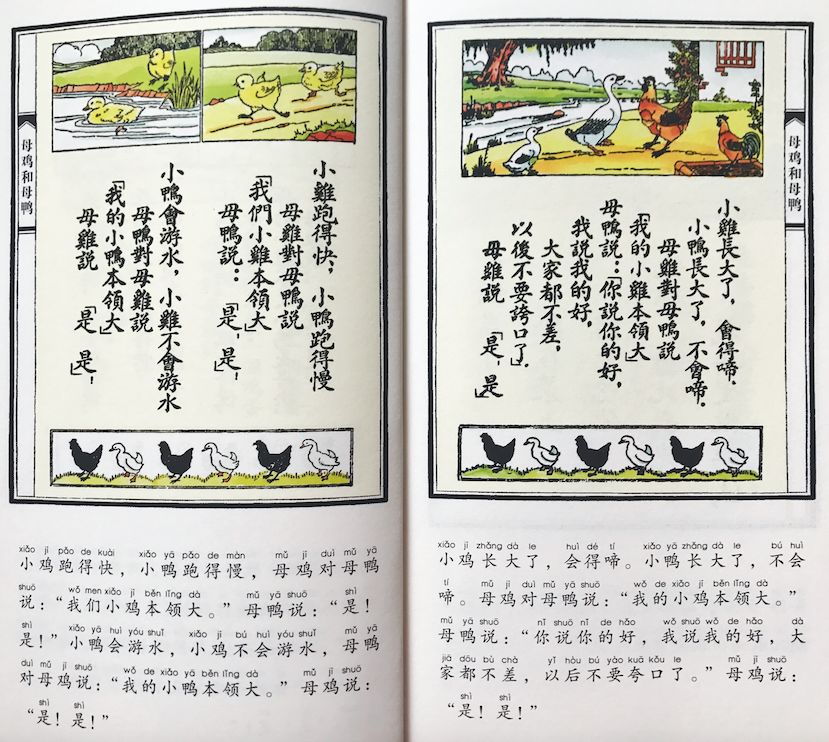 母鸡和母鸭
小雞跑得快，小鴨跑得慢
母雞對母鴨說
「我們小雞本領大」
母鴨說：「是，是！」
小鴨會游水，小雞不會游水
母鴨對母雞說
「我的小鴨本領大」
母雞說「是，是！」
xiǎo jī pǎo de kuài xiǎo yā pǎo de màn mǔ jī duì mǔ yā
小鸡跑得快，小鸭跑得慢，母鸡对母鸭
shuō wǒ men xiǎo jī běn lǐng dà mǔ yā shuō shì
说：“我们小鸡本领大。”母鸭说：“是！
shì xiǎo yā huì yóu shuǐ xiǎo jī bú huì yóu shuǐ mǔ yā
是！”小鸭会游水，小鸡不会游水，母鸭
duì mǔ jī shuō wǒ de xiǎo yā běn lǐng dà mǔ jī shuō
对母鸡说：“我的小鸭本领大。”母鸡说：
shì shì
“是！是！”
母鸡和母鸭
小雞長大了，會得啼．
小鴨長大了，不會啼．
母雞對母鴨說
「我的小雞本領大」
母鴨說：「你說你的好，
我說我的好，
大家都不差，
以後不要誇口了．」
母雞說「是，是」
xiǎo jī zhǎng dà le huì dé tí xiǎo yā zhǎng dà le bú huì
小鸡长大了，会得啼。小鸭长大了，不会
tí mǔ jī duì mǔ yā shuō wǒ de xiǎo jī běn lǐng dà
啼。母鸡对母鸭说：“我的小鸡本领大。”
mǔ yā shuō nǐ shuō nǐ de hǎo wǒ shuō wǒ de hǎo dà
母鸭说：“你说你的好，我说我的好，大
jiā dōu bù chà yǐ hòu bú yào kuā kǒu le mǔ jī shuō
家都不差，以后不要夸口了。”母鸡说：
shì shì
“是！是！”